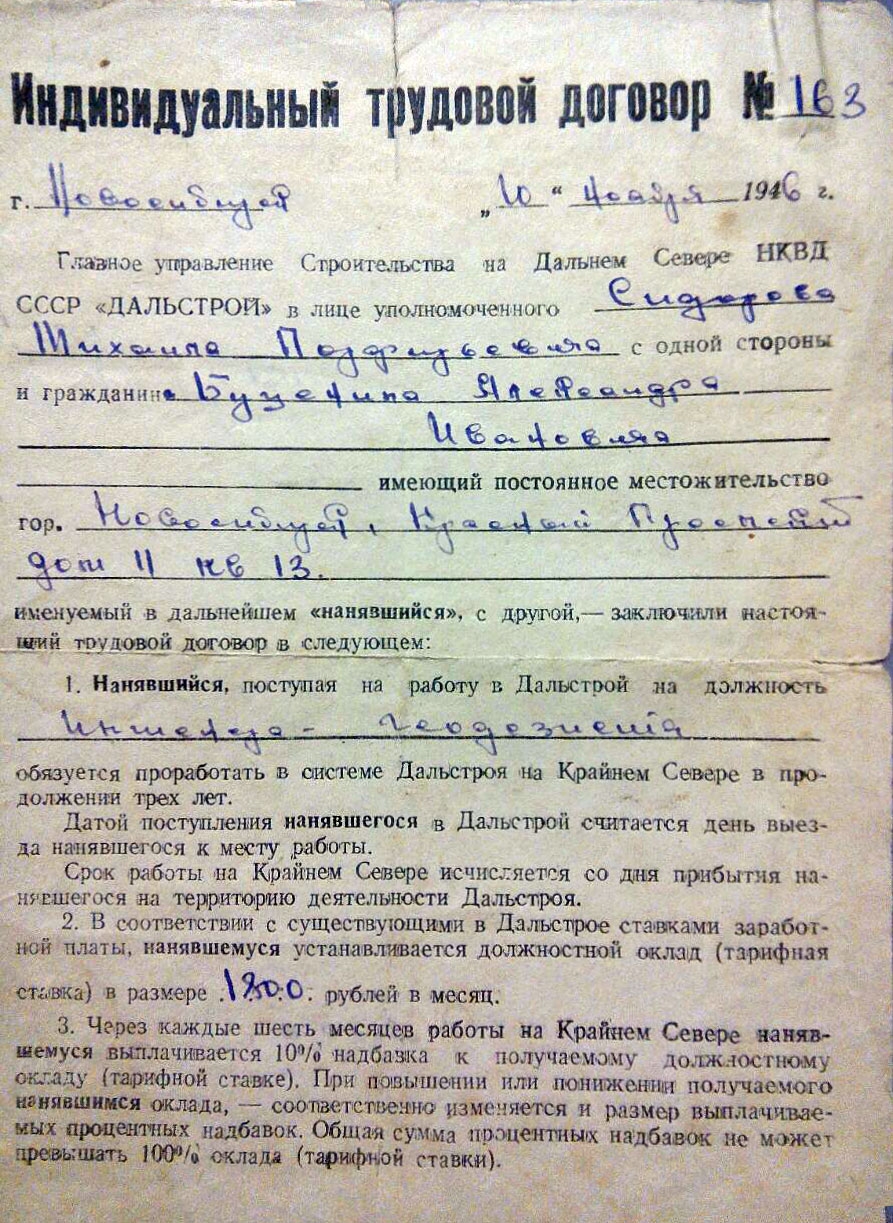 Индивидуальный трудовой договор № 163
г. Новосибирск „10“ Ноября 1946 г.
Главное управление Строительства на Дальнем Севере НКВД
СССР «ДАЛЬСТРОЙ» в лице уполномоченного Сидорова
Михаила с одной стороны
и гражданина Александра
Ивановича
имеющий постоянное местожительство
гор. Новосибирск, Красный Проспект
дом 11 кв 13.
именуемый в дальнейшем «нанявшийся», с другой,— заключили настоя-
щий трудовой договор в следующем:
1. Нанявшийся, поступая на работу в Дальстрой на должность
Инженера - геодезиста
обязуется проработать в системе Дальстроя на Крайнем Севере в про-
должении трех лет.
Датой поступления нанявшегося в Дальстрой считается день выез-
да нанявшегося к месту работы.
Срок работы на Крайнем Севере исчисляется со дня прибытия на-
нявшегося на территорию деятельности Дальстроя.
2. В соответствии с существующими в Дальстрое ставками заработ-
ной платы, нанявшемуся устанавливается должностной оклад (тарифная
ставка) в размере 1300 рублей в месяц.
3. Через каждые шесть месяцев работы на Крайнем Севере наняв-
шемуся выплачивается 10% надбавка к получаемому должностному
окладу (тарифной ставке). При повышении или понижении получаемого
нанявшимся оклада, — соответственно изменяется и размер выплачивае-
мых процентных надбавок. Общая сумма процентных надбавок не может
превышать 100% оклада (тарифной ставки).